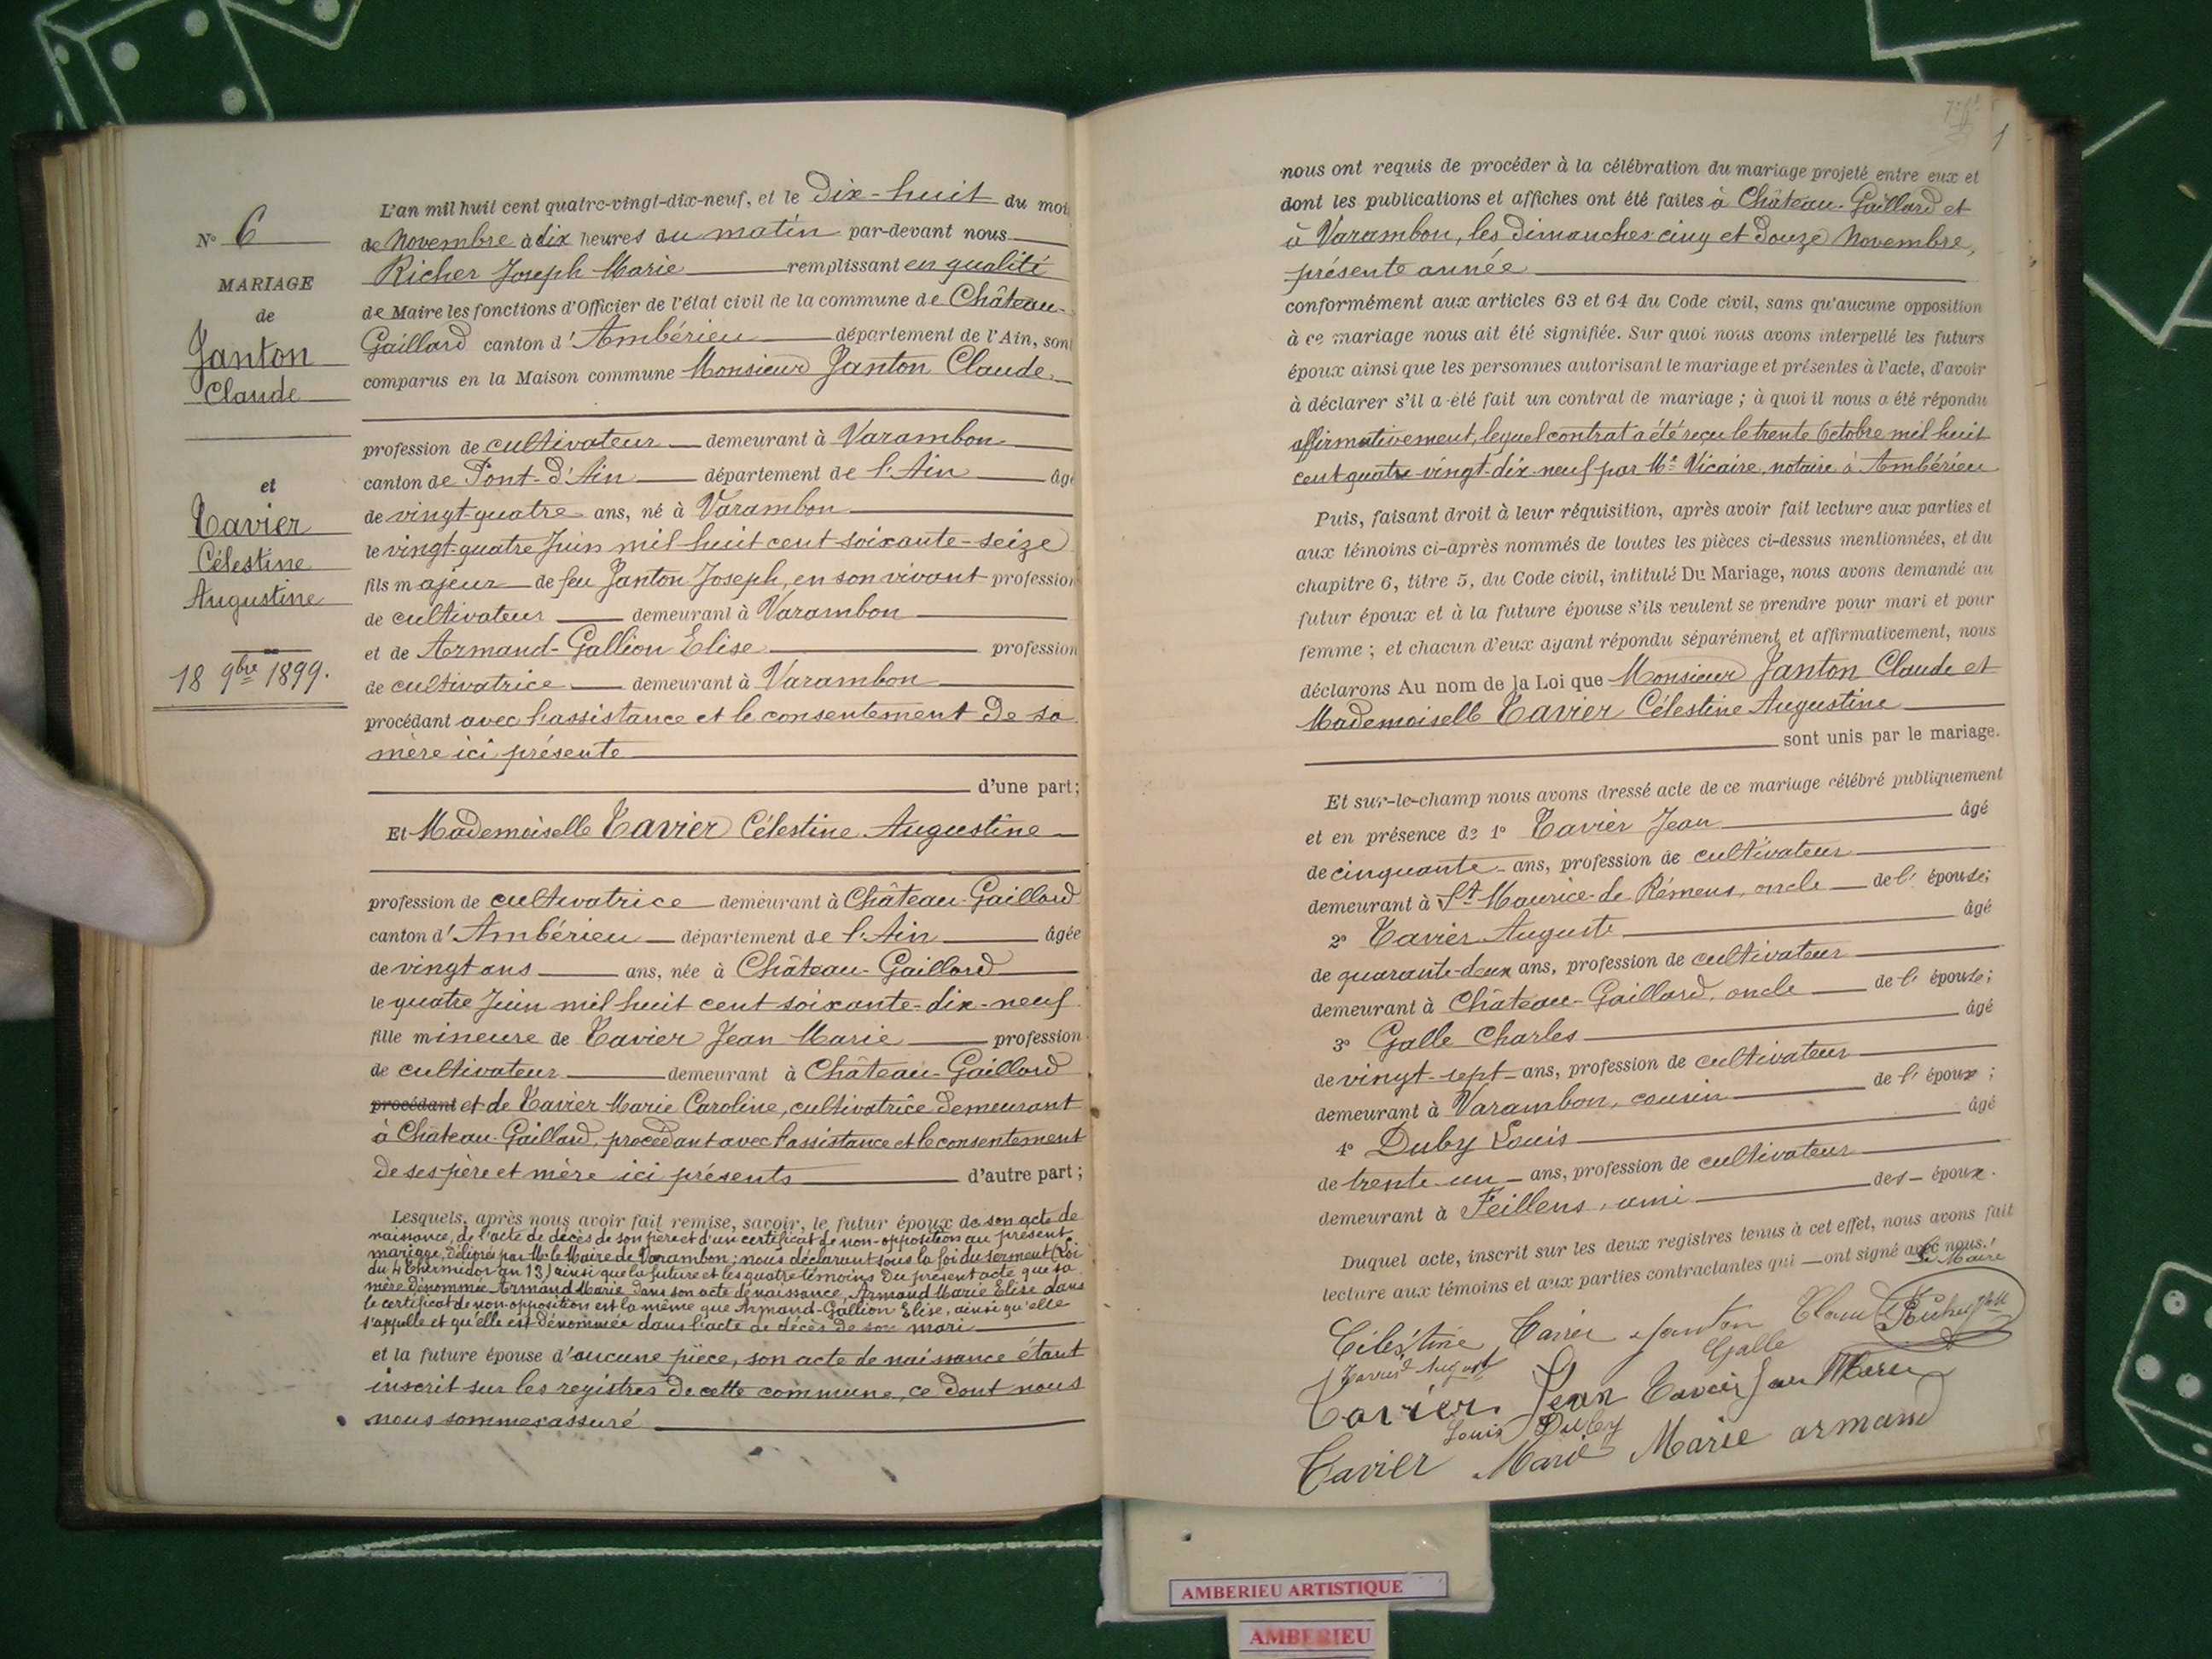 N° 6
MARIAGE
de
Janton
Claude
et
Tavier
Célestine
Augustine
18 9bre 1899.
L'an mil huit cent quatre-vingt-dix-neuf, et le Dix-huit du moi
de Novembre à dix heures du matin par-devant nous
Richer Joseph Marie remplissant en qualité
de Maire les fonctions d'Officier de l'état civil de la commune de Château-
Gaillard canton d'Ambérieu département de l'Ain, sont
comparus en la Maison commune Monsieur Janton Claude
profession de cultivateur demeurant à Varambon
canton de Pont-d'Ain département de l'Ain âgé
de vingt-quatre ans, né à Varambon
le vingt-quatre Juin mil huit cent soixante-seize
fils majeur de feu Janton Joseph, en son vivant profession
de cultivateur demeurant à Varambon
et de Armand-Gallion Elise profession
de cultivatrice demeurant à Varambon
procédant avec l'assistance et le consentement de sa
mère ici présente
d'une part;
Et Mademoiselle Tavier Célestine Augustine
profession de cultivatrice demeurant à Château-Gaillard
canton d'Ambérieu département de l'Ain âgée
de vingt ans ans, née à Château-Gaillard
le quatre Juin mil huit cent soixante-dix-neuf
fille mineure de Tavier Jean Marie profession
de cultivateur demeurant à Château-Gaillard
procédant et de Tavier Marie Caroline, cultivatrice demeurant
à Château-Gaillard, procédant avec l'assistance et le consentement
de ses père et mère ici présents d'autre part;
Lesquels, après nous avoir fait remise, savoir, le futur époux de son acte de
naissance, de l'acte de décès de son père et d'un certificat de non-opposition au présent
mariage, délivrés par Mr le Maire de Varambon; nous déclarant sous la foi du serment (Loi
du 4 Thermidor an 13) ainsi que la future et les quatre témoins du présent acte que sa
mère dénommée Armand Marie dans son acte de naissance, Armand Marie Elise dans
le certificat de non-opposition est la même que Armand-Gallion Elise, ainsi qu'elle
s'appelle et qu'elle est dénommée dans l'acte de décès de son mari
et la future épouse d'aucune pièce, son acte de naissance étant
inscrit sur les registres de cette commune, ce dont nous
nous sommes assuré
1
nous ont requis de procéder à la célébration du mariage projeté entre eux et
dont les publications et affiches ont été faites à Château-Gaillard et
à Varambon, les dimanches cinq et douze Novembre,
présente année
conformément aux articles 63 et 64 du Code civil, sans qu'aucune opposition
à ce mariage nous ait été signifiée. Sur quoi nous avons interpellé les futurs
époux ainsi que les personnes autorisant le mariage et présentes à l'acte, d'avoir
à déclarer s'il a été fait un contrat de mariage; à quoi il nous a été répondu
affirmativement, lequel contrat a été reçu le trente Octobre mil huit
cent quatre-vingt-dix-neuf par Me Vicaire, notaire à Ambérieu
Puis, faisant droit à leur réquisition, après avoir fait lecture aux parties et
aux témoins ci-après nommés de toutes les pièces ci-dessus mentionnées, et du
chapitre 6, titre 5, du Code civil, intitulé Du Mariage, nous avons demandé au
futur époux et à la future épouse s'ils veulent se prendre pour mari et pour
femme; et chacun d'eux ayant répondu séparément et affirmativement, nous
déclarons Au nom de la Loi que Monsieur Janton Claude et
Mademoiselle Tavier Célestine Augustine
sont unis par le mariage.
Et sur-le-champ nous avons dressé acte de ce mariage célébré publiquement
et en présence de 1° Tavier Jean âgé
de cinquante ans, profession de cultivateur
demeurant à St Maurice-de Rémens, oncle de l'épouse;
2° Tavier Auguste âgé
de quarante-deux ans, profession de cultivateur
demeurant à Château-Gaillard, oncle de l'épouse;
3° Galle Charles âgé
de vingt-sept ans, profession de cultivateur
demeurant à Varambon, cousin de l'époux;
4° Duby Louis âgé
de trente-un ans, profession de cultivateur
demeurant à Feillens, ami des époux.
Duquel acte, inscrit sur les deux registres tenus à cet effet, nous avons fait
lecture aux témoins et aux parties contractantes qui ont signé avec nous.
Le Maire
Célestine Tavier Janton Claude Richer
Tavier August Galle
Tavier Jean Tavier Jean Marie
Louis Duby
Tavier Marie Marie armand
AMBERIEU ARTISTIQUE
AMBERIEU